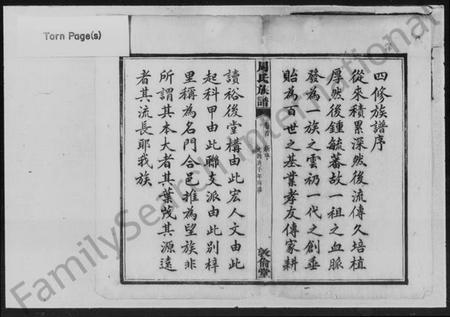 Torn Page(s)
四修族譜序
從來積累深然後流傳久培植
厚然後鍾毓蕃故一祖之血脈
發為一族之雲礽一代之創垂
貽為百世之基業孝友傳家耕
周氏族譜
敦倫堂
讀裕後堂構由此宏人文由此
起科甲由此聯支派由此別梓
里稱為名門合邑推為望族非
所謂其本大者其葉茂其源遠
者其流長耶我族
FamilySearch International